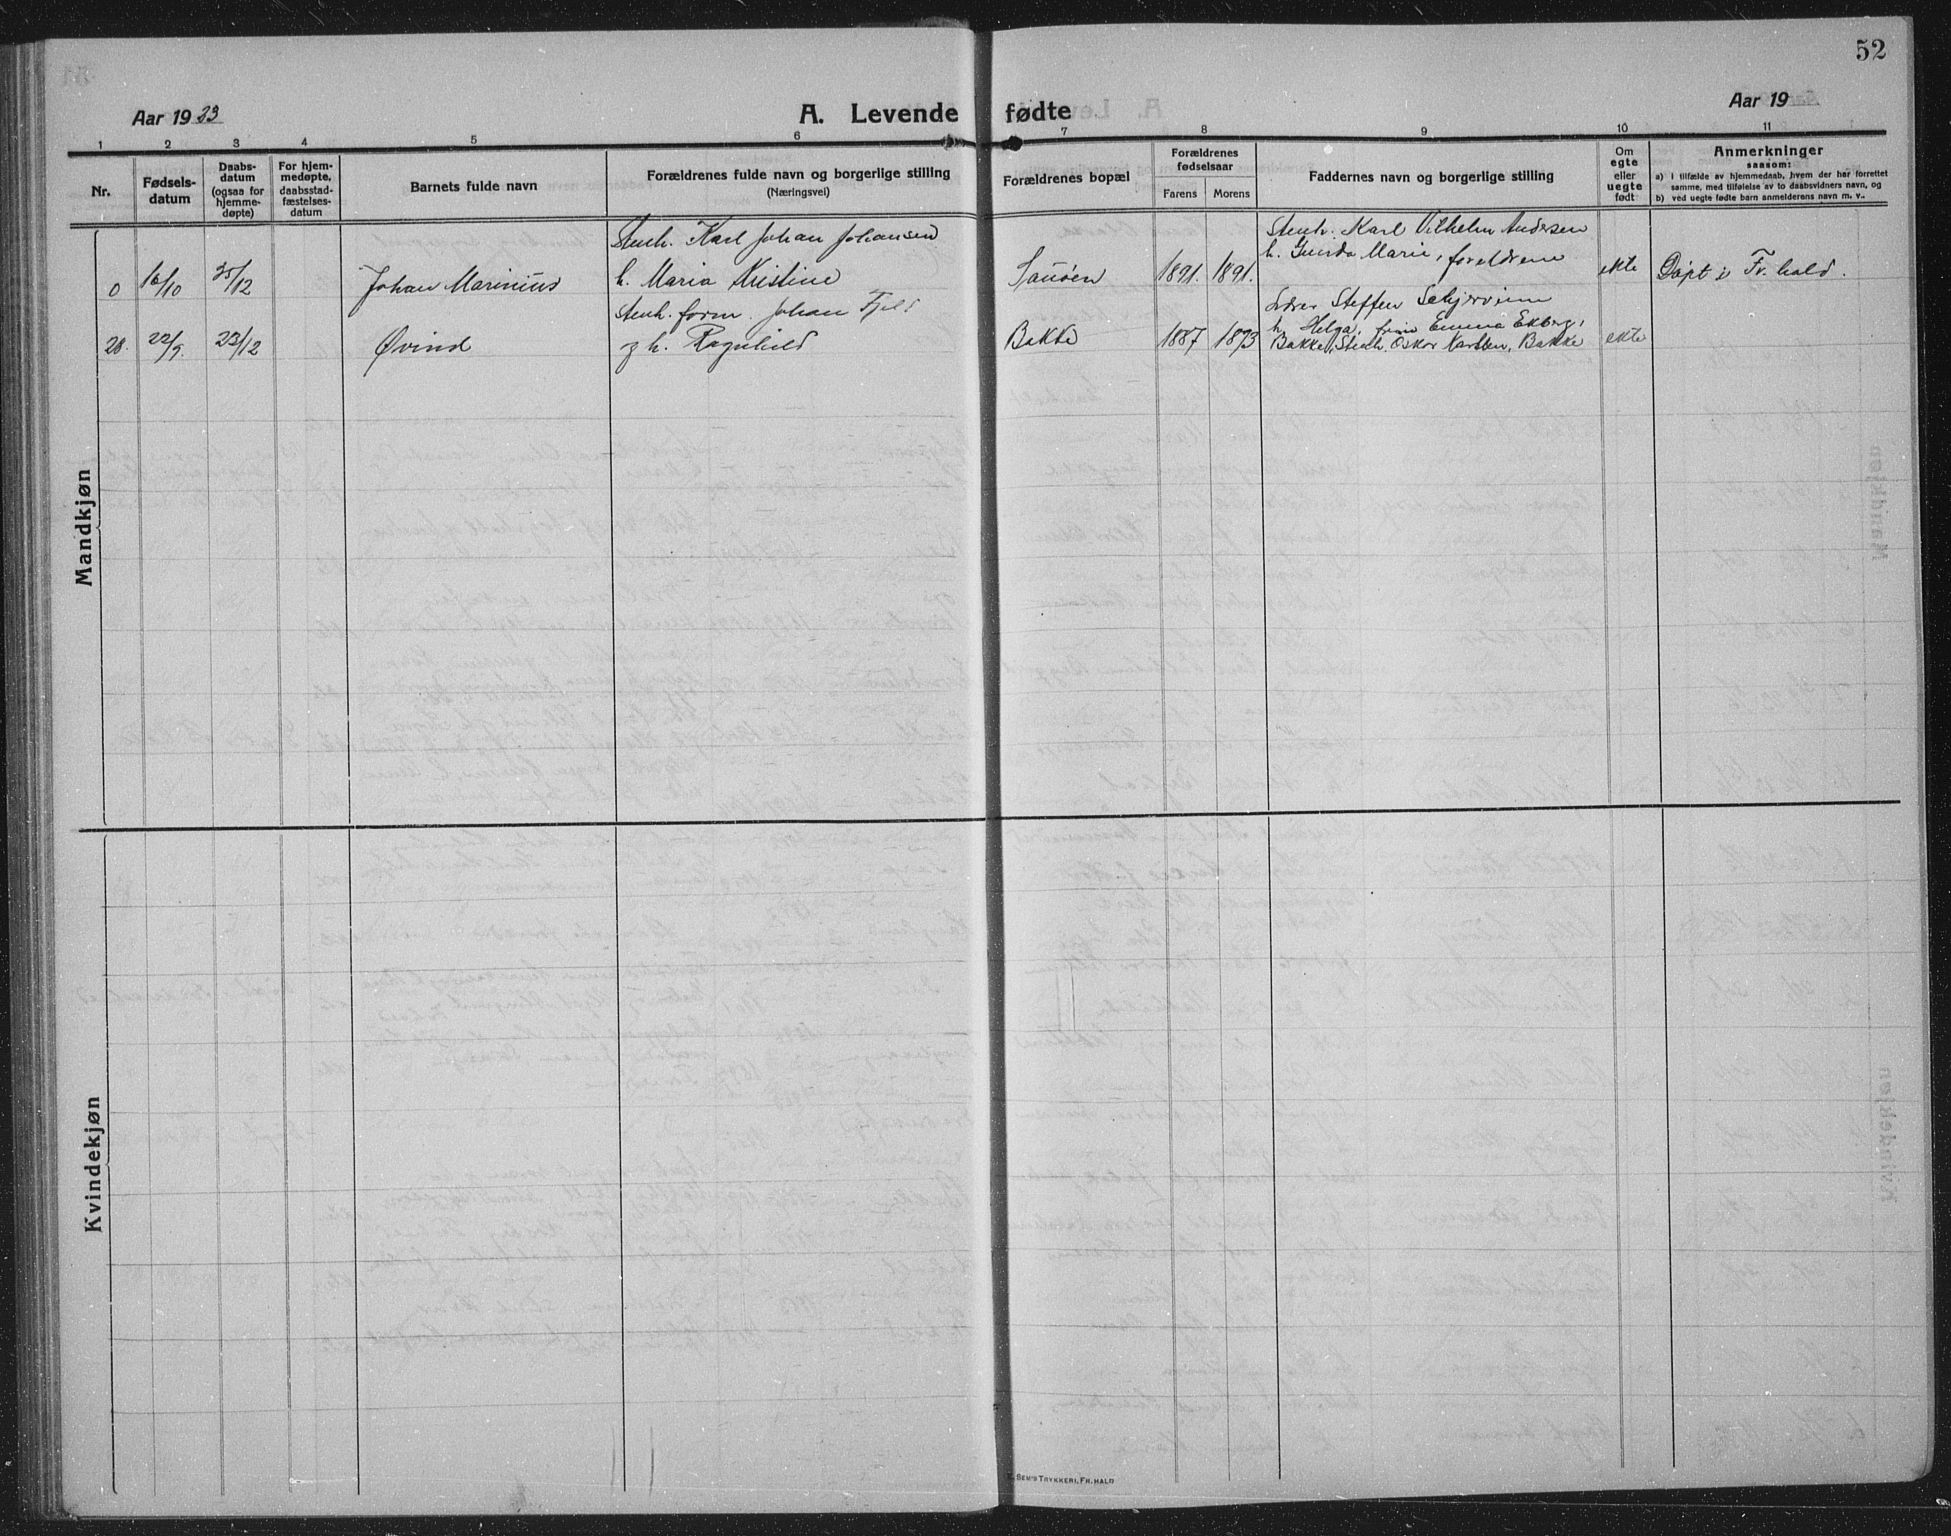 52
Aar 1923
A. Levende fødte
Aar 19
1 2 3 4 5 6 7 8 9 10 11
Nr.
Fødselsdatum
Daabsdatum (ogsaa for hjemmedøpte)
For hjemmedøpte, daabsstadfæstelsesdatum
Barnets fulde navn
Forældrenes fulde navn og borgerlige stilling
(Næringsvei)
Forældrenes bopæl
Forældrenes fødselsaar
Farens Morens
Faddernes navn og borgerlige stilling
Om egte eller uegte født
Anmerkninger
saasom:
a) i tilfælde av hjemmedaab, hvem der har forrettet
samme, med tilføielse av to daabsvidners navn, og
b) ved uegte fødte barn anmelderens navn m. v..
Mandkjøn
Stenh. Karl Johan Johansen
Stenh. Karl Vilhelm Andersen
h. Gunda Marie, foreldrene
0 16/10 25/12 Johan Marinius h. Maria Kristine 1891. 1891. ekte Døpt i Fr.hald.
Stenh. form. Johan Fjeld
Lærer Steffen
28. 22/9. 23/12 Øvind og h. Ragnhild Bakke 1887 1873 h. Helga, frue Emma Ekberg, ekte
Bakke, Stenh. Oskar Karlsen, Bakke
Kvindekjøn
SEM'S TRYKKERI, FR.HALD